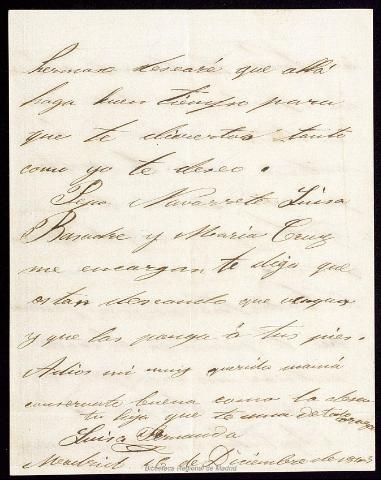 hermoso desearé que allá
haga buen tiempo para
que te diviertas tanto
como yo te deseo.
Pepa Navarrete Luisa
Basadre y Maria Cruz
me encargan te diga que
estan deseando que vengas
y que las ponga á tus pies.
Adios mi muy querida mamá
conservate buena como lo desea
tu hija que te ama de todo corazon
Luisa Fernanda
Madrid 16 de Diciembre de
Biblioteca Regional de Madrid